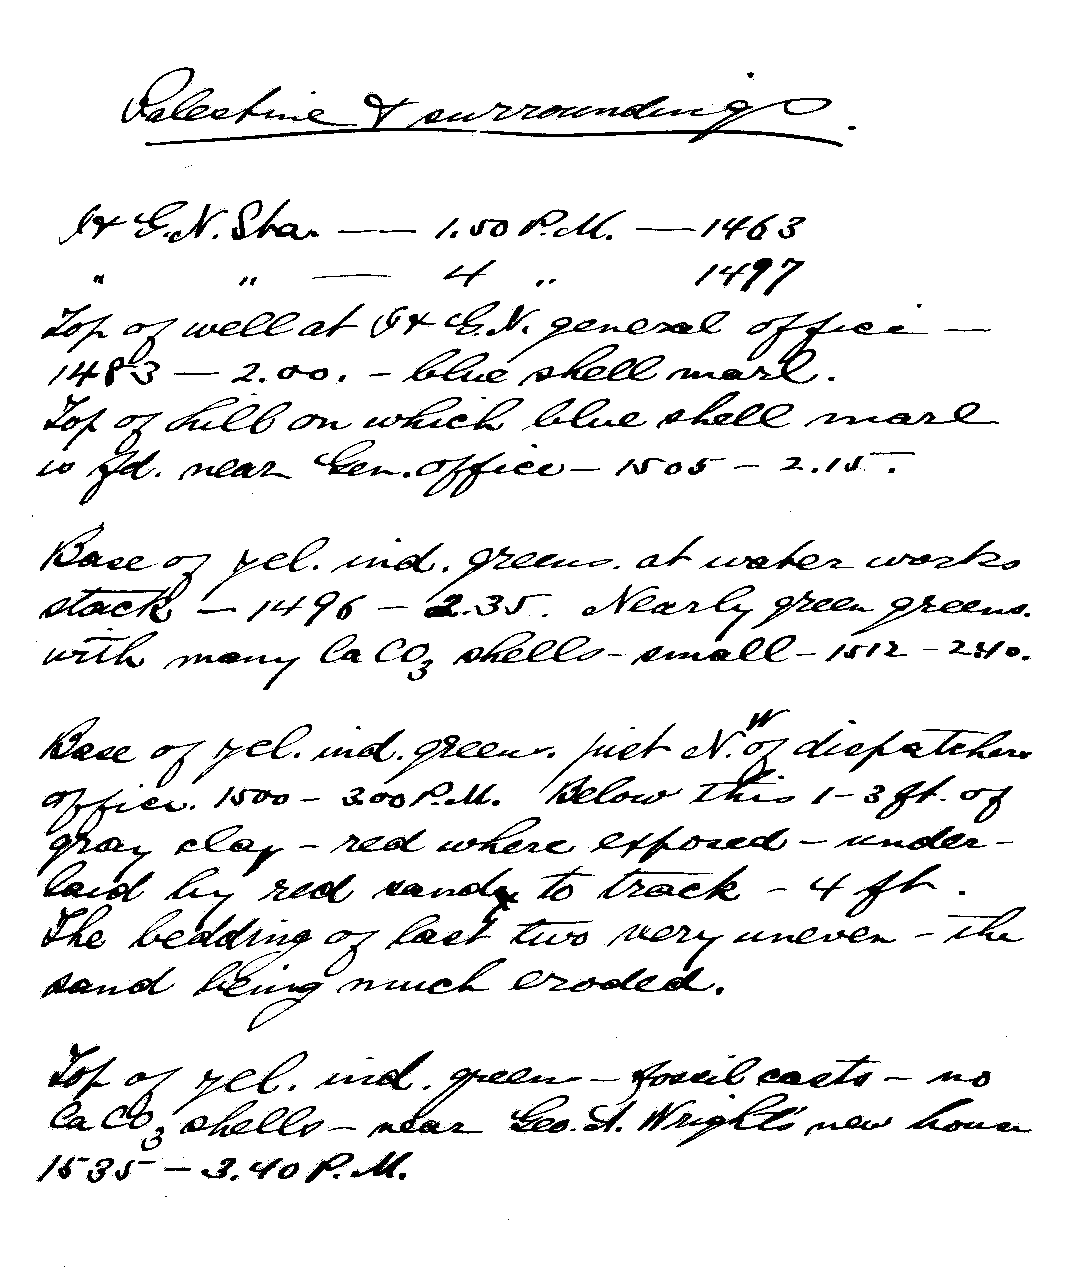 Palestine & surroundings.
I & G.N. Sta. — 1.50 P.M. — 1463
" " — 4 " 1497
Top of well at I & G.N. general office —
1483 — 2.00. — blue shell marl.
Top of hill on which blue shell marl
is fd. near Gen. office — 1505 — 2.15.
Base of yel. ind. greens. at water works
stack — 1496 — 2.35. Nearly green greens.
with many CaCO3 shells — small — 1512 — 2.40.
Base of yel. ind. greens. just N.W of dispatchers
office. 1500 — 3.00 P.M. Below this 1-3 ft. of
gray clay — red where exposed — under-
laid by red sand to track — 4 ft.
The bedding of last two very uneven — the
sand being much eroded.
Top of yel. ind. greens — fossil casts — no
CaCO3 shells — near Geo. A. Wright's new house
1535 — 3.40 P.M.